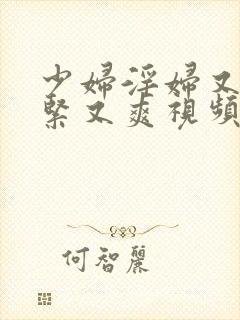 少婦淫婦又
緊又爽視頻
何智麗